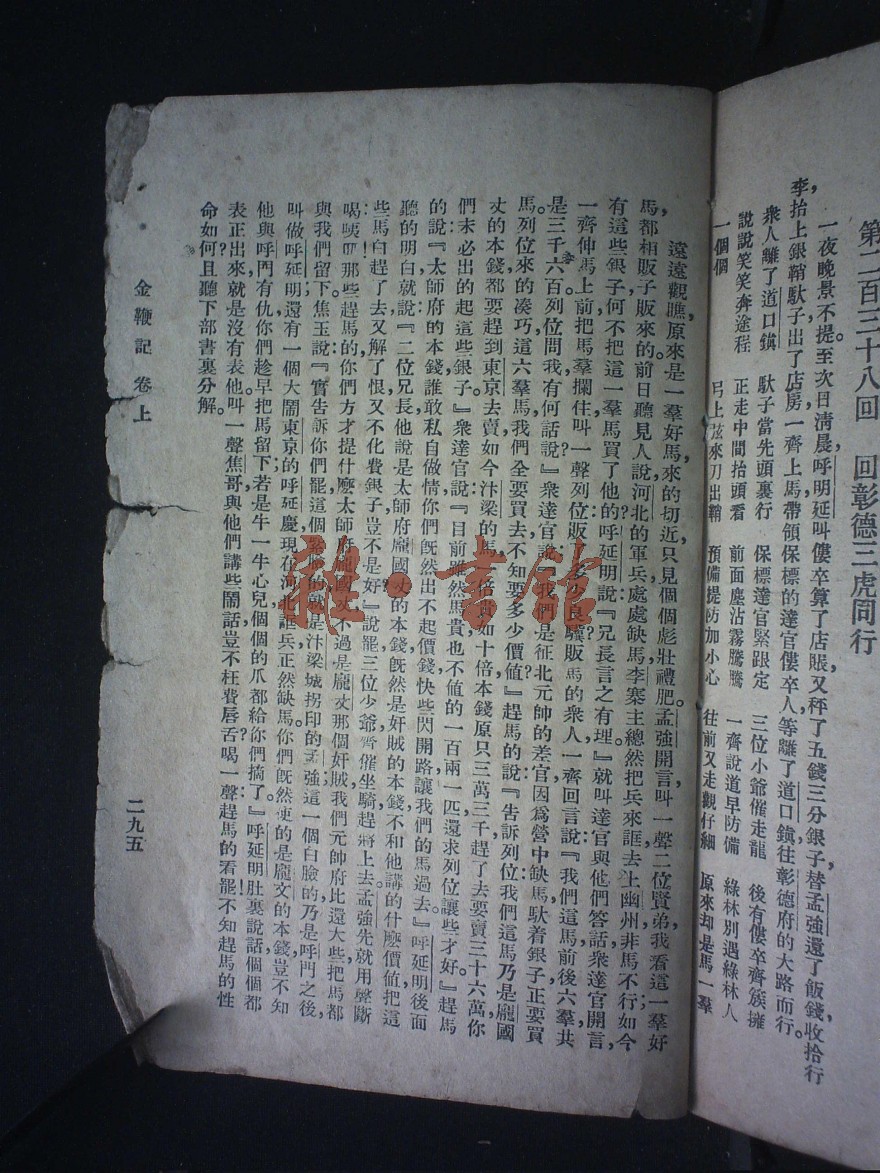 第二百三十八回　回彰德三虎同行
一夜晚景不提。至次日淸晨，呼明延叫僂卒算了店賬，又秤了五錢三分銀子，替孟強還了飯錢，收拾行
李，抬上銀鞘馱子，出了店房，一齊上馬，帶領保標的達官僂卒人等，離了道口鎭，往彰德府的大路而行。
衆人離了道口鎮　馱子當先頭裏行　保標達官緊跟定　三位小爺催走龍　後有僂卒齊簇擁
說說笑笑奔途程　正走中間抬頭看　前面塵沾霧騰騰　一齊說道早防備　綠林別遇綠林人
一個個　弓上弦來刀出鞘　預備提防加小心　往前又走觀仔細　原來却是馬一羣
遠遠觀瞧，原來是一羣好馬，來的切近，只見個個彪壯禮肥。孟強開言，叫一聲二位賢弟，我看這一羣好
馬，都相販子販來的。前日聽見人說，河北的軍兵，處處缺馬，李寨主總然把兵來誆去，上幽州非馬不行，如今
有這些銀子，何不把這一羣馬買了他的？呼延明說：『兄長言之有理。』就叫達官與他們答話，衆達官開言，
一齊伸馬上前，把馬羣攔住，叫一聲列位販多少良驥？販馬的衆人一齊回言說：『我們這馬前後六羣，共
是三千六百，列位問我有何話說？』衆達官說：『我們是征北元帥的差官，因爲營中缺馬，馱着銀子，正要買
馬，列位來的凑巧，這六羣馬我們全要買去，不知要多少價値？』趕馬的說：『告訴列位，我們這馬乃是龐國
丈的本錢，都要趕到東京去賣，如今汴梁的馬，一倍貴如十倍，本錢原只三萬三千，趕了去要賣三十六萬，你
們未必出的起這些銀子。』衆達官說：『目前雖然馬貴，也不値的一百兩一匹，還求列位讓些才好。』趕馬
的說：『太師府的本錢，誰敢私自做情，你們旣然出不起價錢，快些閃開路，讓我們的馬過去。』呼延明後面
聽的明白，就說：『二位兄長，他說是太師府龐國丈的本錢，旣然是奸賊的本錢，不和他講的什麼價値，把這
些馬白趕了去，又解了恨，又不化費銀子，豈不是好？』說罷，三位少爺齊催坐騎，趕將上去，孟強先就用聲斷
喝：呔！那些趕馬的，你們方才提什麽太師府龐國丈，不過是龐文那個奸賊，我們元帥府比還大些，把馬都
與我們留下。焦玉說：『實告訴你們罷，這個的就是汴梁城拐印的孟強，這一個白臉的乃是呼門之後，
叫做呼延明，還有一個大鬧東京的呼延慶，現在河北誆兵，正然缺馬，你們旣然的是龐文的本錢，豈不知
他與呼門有仇，你們趁早把馬留下，若是牛一牛心兒，個個的爪都給你們摘了。』呼延明肚裏說話，個個都
表正出來，就是沒有表他，叫一聲焦哥，與他們講些閙話，豈不枉費唇舌，喝一聲趕馬的看罷！不知趕馬的性
命如何？且聽下部書裏分解。
金鞭記　卷上
二九五
雜·書館